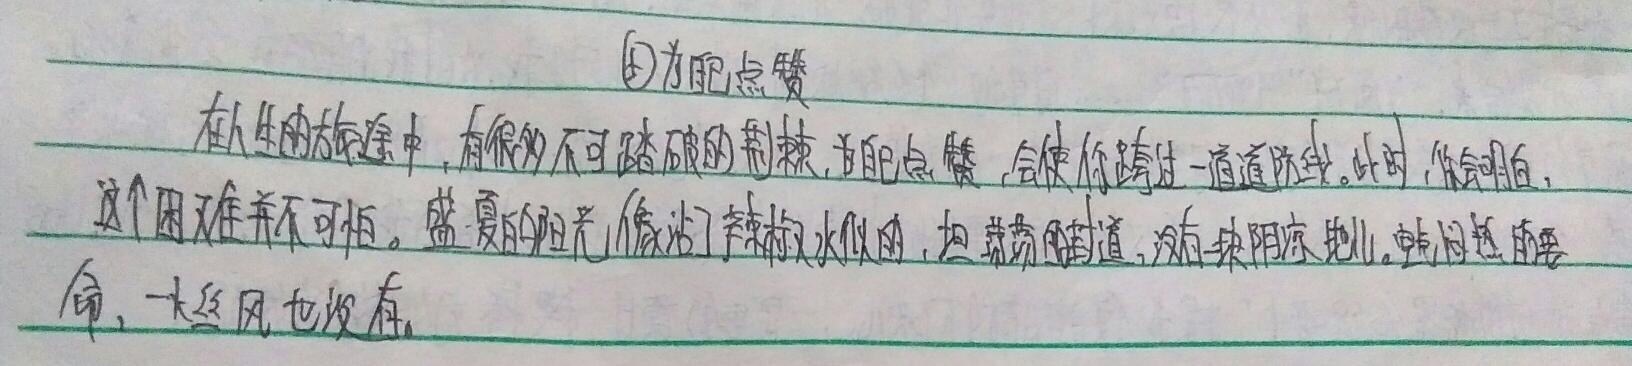 ①为自己点赞
在人生的旅途中，有很多不可踏破的荆棘，为自己点赞，会使你跨过一道道防线。此时，你会明白，
这个困难并不可怕。盛夏的阳光，像沾了辣椒水似的，坦荡荡的街道，没有一块阴凉地儿。闷热的要
命，一丝风也没有。